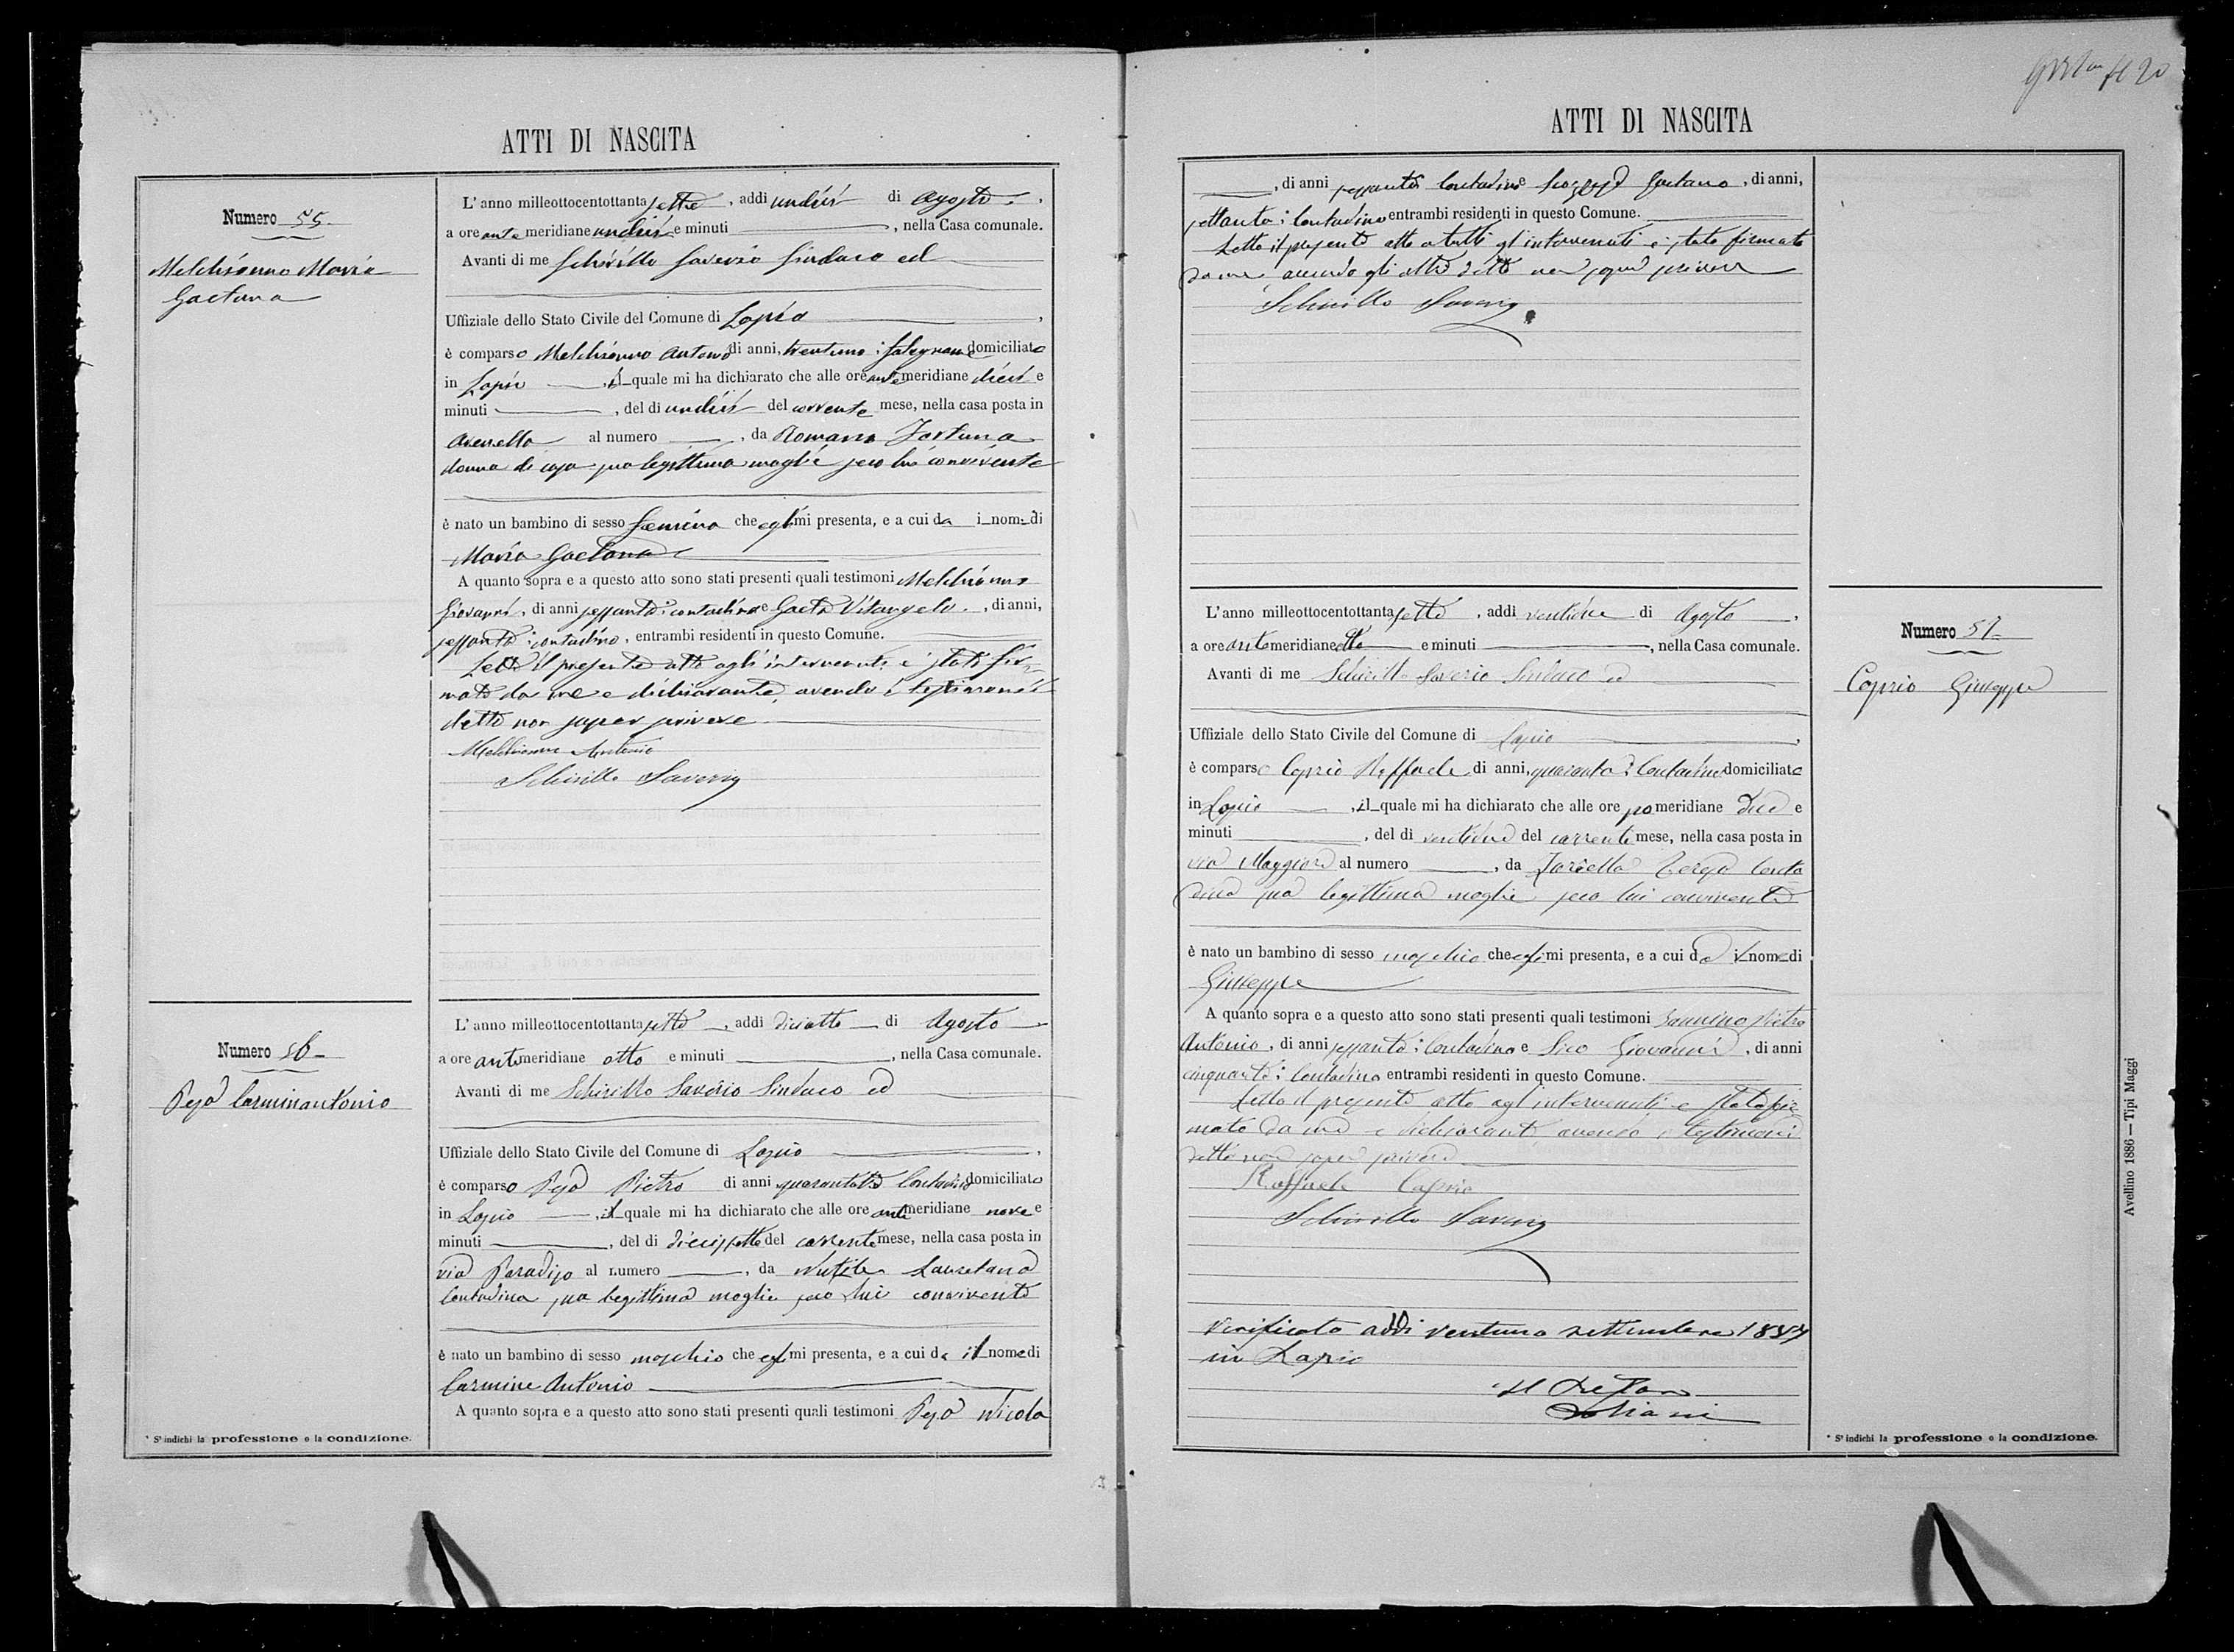 ATTI DI NASCITA
Numero 55
Melchionno Maria
Gaetana
L'anno milleottocentottantasette, addì undici di Agosto,
a ore antemeridiane undici e minuti, nella Casa comunale.
Avanti di me Schirillo Saverio Sindaco ed
Uffiziale dello Stato Civile del Comune di Lapio,
è comparso Melchionno Antonio di anni, trentuno; falegname domiciliato
in Lapio, il quale mi ha dichiarato che alle ore antemeridiane dieci e
minuti, del dì undici del corrente mese, nella casa posta in
al numero, da Romano Fortuna
donna di casa sua legittima moglie seco lui convivente
è nato un bambino di sesso femina che egli mi presenta, e a cui da i nome di
Maria Gaetana
A quanto sopra e a questo atto sono stati presenti quali testimoni Melchionno
Giovanni, di anni sessanta; contadino e Gaeta Vitangelo, di anni,
sessanta; contadino, entrambi residenti in questo Comune.
Letto il presente atto agli intervenuti è stato fir-
mato da me e dichiarante, avendo i testimoni
detto non saper scrivere
Melchionno Antonio
Schirillo Saverio
Numero 56
Pepa Carminantonio
L'anno milleottocentottantasette, addì diciotto di Agosto
a ore antemeridiane otto e minuti, nella Casa comunale.
Avanti di me Schirillo Saverio Sindaco ed
Uffiziale dello Stato Civile del Comune di Lapio,
è comparso Pepa Pietro di anni contadino domiciliato
in Lapio, il quale mi ha dichiarato che alle ore antemeridiane nove e
minuti, del dì diecissette del corrente mese, nella casa posta in
via Paradiso al numero, da Nutile Lauretana
Contadina sua legittima moglie seco lui convivente
è nato un bambino di sesso maschio che egli mi presenta, e a cui da il nome di
Carmine Antonio
A quanto sopra e a questo atto sono stati presenti quali testimoni Pepa Nicola
* S'indichi la professione o la condizione.
ATTI DI NASCITA
, di anni sessanta Contadino e Gaetano, di anni,
settanta; Contadino entrambi residenti in questo Comune.
Letto il presente atto a tutti gl'intervenuti è stato firmato
da me avendo gli altri detto non saper scrivere
Schirillo Saverio
Numero 57
Caprio Giuseppe
L'anno milleottocentottantasette, addì ventidue di Agosto,
a ore antemeridiane otto e minuti, nella Casa comunale.
Avanti di me Schirillo Saverio Sindaco ed
Uffiziale dello Stato Civile del Comune di Lapio,
è comparso Caprio Raffaele di anni, quaranta; Contadino domiciliato
in Lapio, il quale mi ha dichiarato che alle ore pomeridiane e
minuti, del dì del corrente mese, nella casa posta in
via Maggiore al numero, da Teresa Conta
dina sua legittima moglie seco lui convivente
è nato un bambino di sesso maschio che egli mi presenta, e a cui da il nome di
Giuseppe
A quanto sopra e a questo atto sono stati presenti quali testimoni Pietro
Antonio, di anni sessanta; Contadino e Sico Giovanni, di anni
cinquanta; Contadino entrambi residenti in questo Comune.
Letto il presente atto agl'intervenuti è stato fir
mato da me e dichiarante avendo i testimoni
detto non saper scrivere
Raffaele Caprio
Schirillo Saverio
Verificato addì ventuno settembre 1887
in Lapio
Il Pretore
* S'indichi la professione o la condizione.
Avellino 1886 — Tipi Maggi